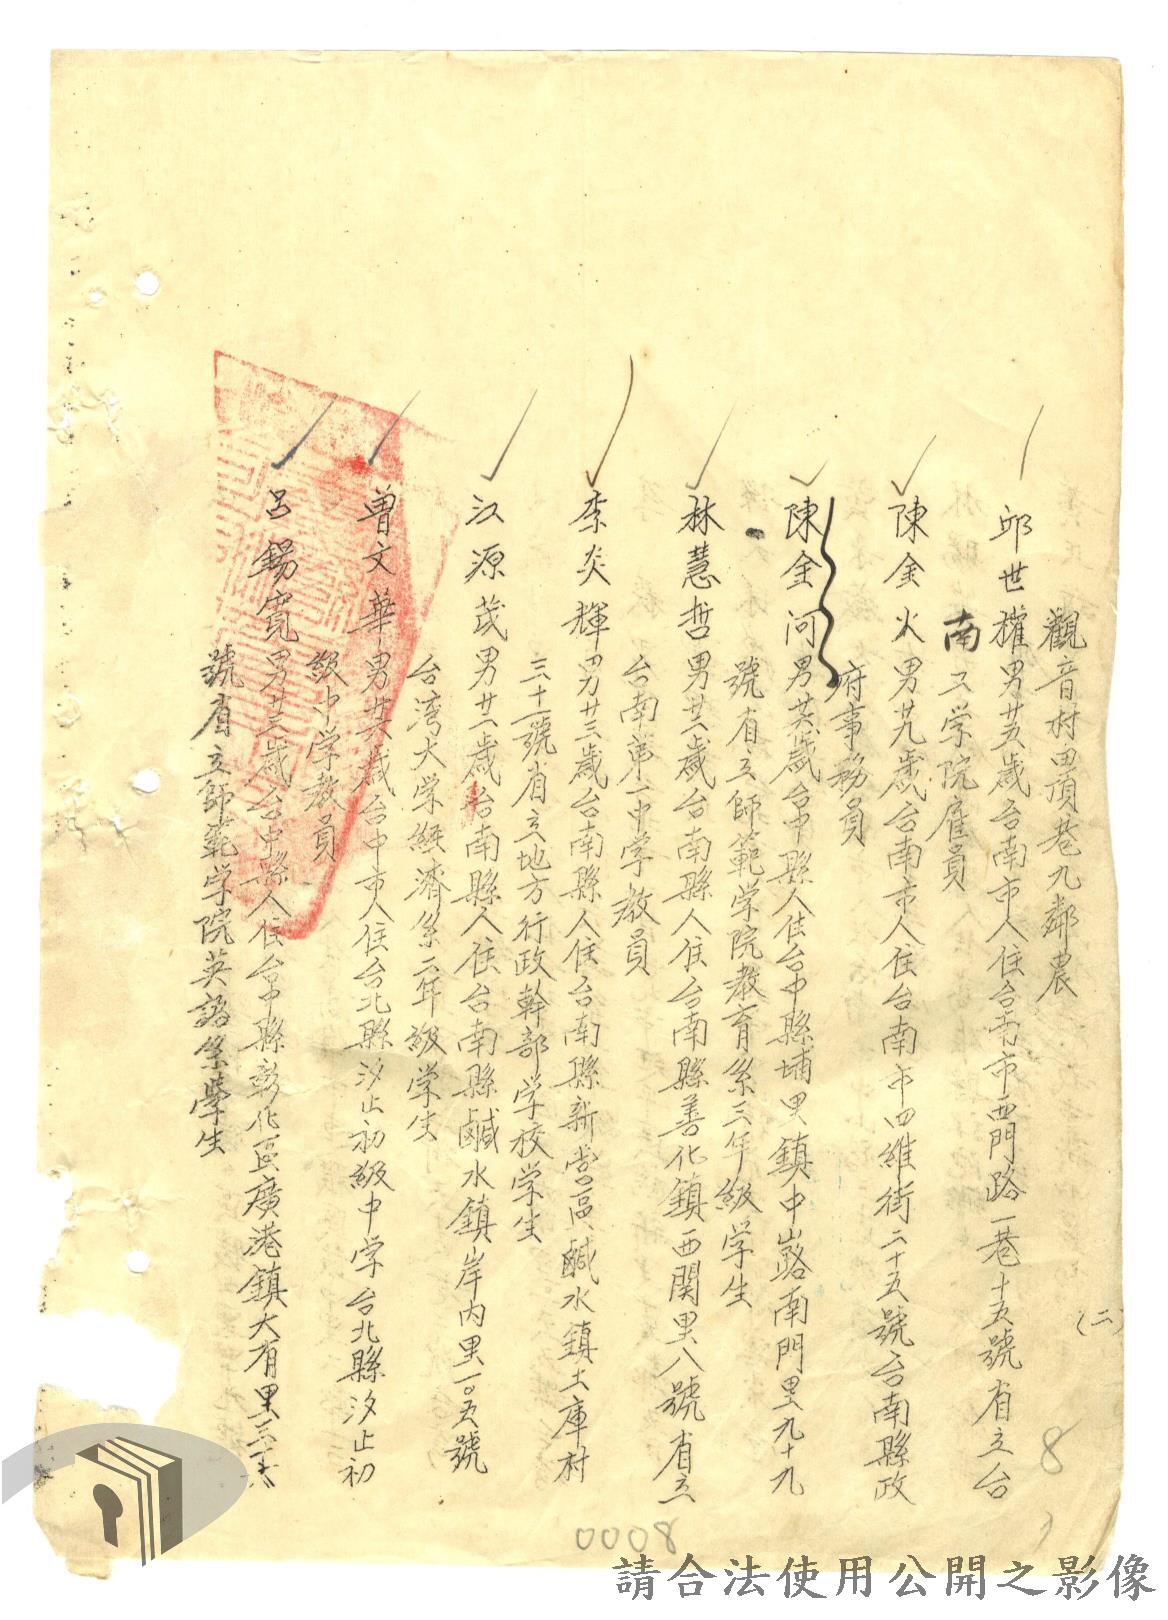 (二)
觀音村田頂巷九鄰農
邱世權男廿五歲台南市人住台南市西門路一巷十五號省立台
南工学院雇員
陳金火男廿九歲台南市人住台南市四維街二十五號台南縣政
府事務員
陳金河男廿六歲台中縣人住台中縣埔里鎮中山路南門里九十九
號省立師範学院教育系三年級学生
林慧哲男廿二歲台南縣人住台南縣善化鎮西関里八號省立
台南第一中学教員
李炎輝男廿三歲台南縣人住台南縣新营區鹹水鎮土庫村
三十一號省立地方行政幹部学校学生
汪源茂男廿一歲台南縣人住台南縣鹹水鎮岸内里一〇五號
台湾大学經濟系二年級学生
曾文華男廿六歲台中市人住台北縣汐止初級中学台北縣汐止初
級中学教員
呂錫寬男廿三歲台中縣人住台中縣彰化區鹿港鎮大有里三十六
號省立師範学院英語系學生
8
0008
請合法使用公開之影像